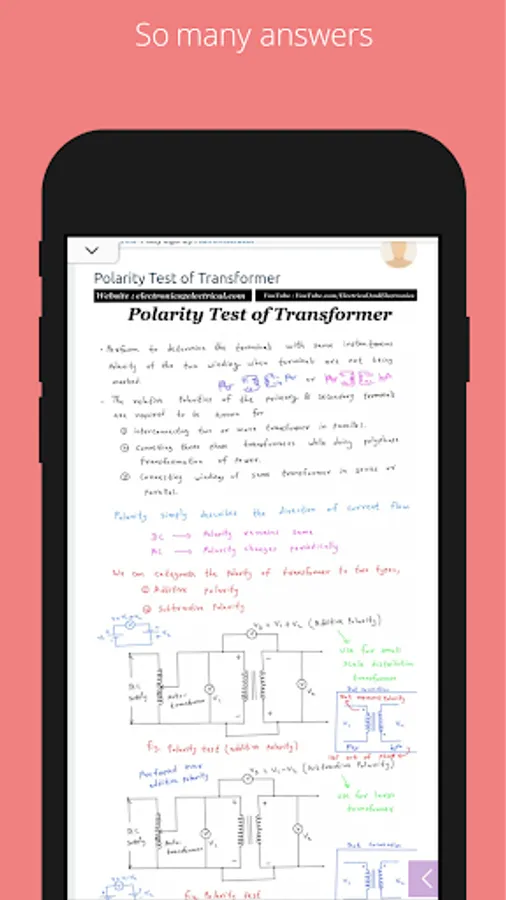 So many answers
Polarity Test of Transformer
Website : electronics2electrical.com
YouTube : YouTube.com/ElectricalAndElectronics
Polarity Test of Transformer
- Perform to determine the terminals with same instantaneous
Polarity of the two winding when terminals are not being
marked. or
- The relative Polarities of the primary & secondary terminals
are required to be known for
① interconnecting two or more transformer in Parallel.
Connecting three phase transformers while doing polyphase
Transformation of Power.
Connecting winding of same transformer in series or
parallel.
Polarity simply describes the direction of current flow
DC → Polarity remains same
AC → Polarity changes periodically
We can categorize the Polarity of transformer to two types,
① Additive polarity
② Subtractive Polarity
V3 = V1 + V2 (Additive Polarity)
use for small
scale distribution
transformer
Supply
Auto-
transformer
V1
V2
Dot convention
V1
V2
out of phase
fig. Polarity test (additive Polarity)
Preferred over
additive polarity
V3 = V1 - V2 (Subtractive Polarity)
use for large
transformer
Supply
Auto-
transformer
V1
V2
Dot convention
V1
V2
fig. Polarity test